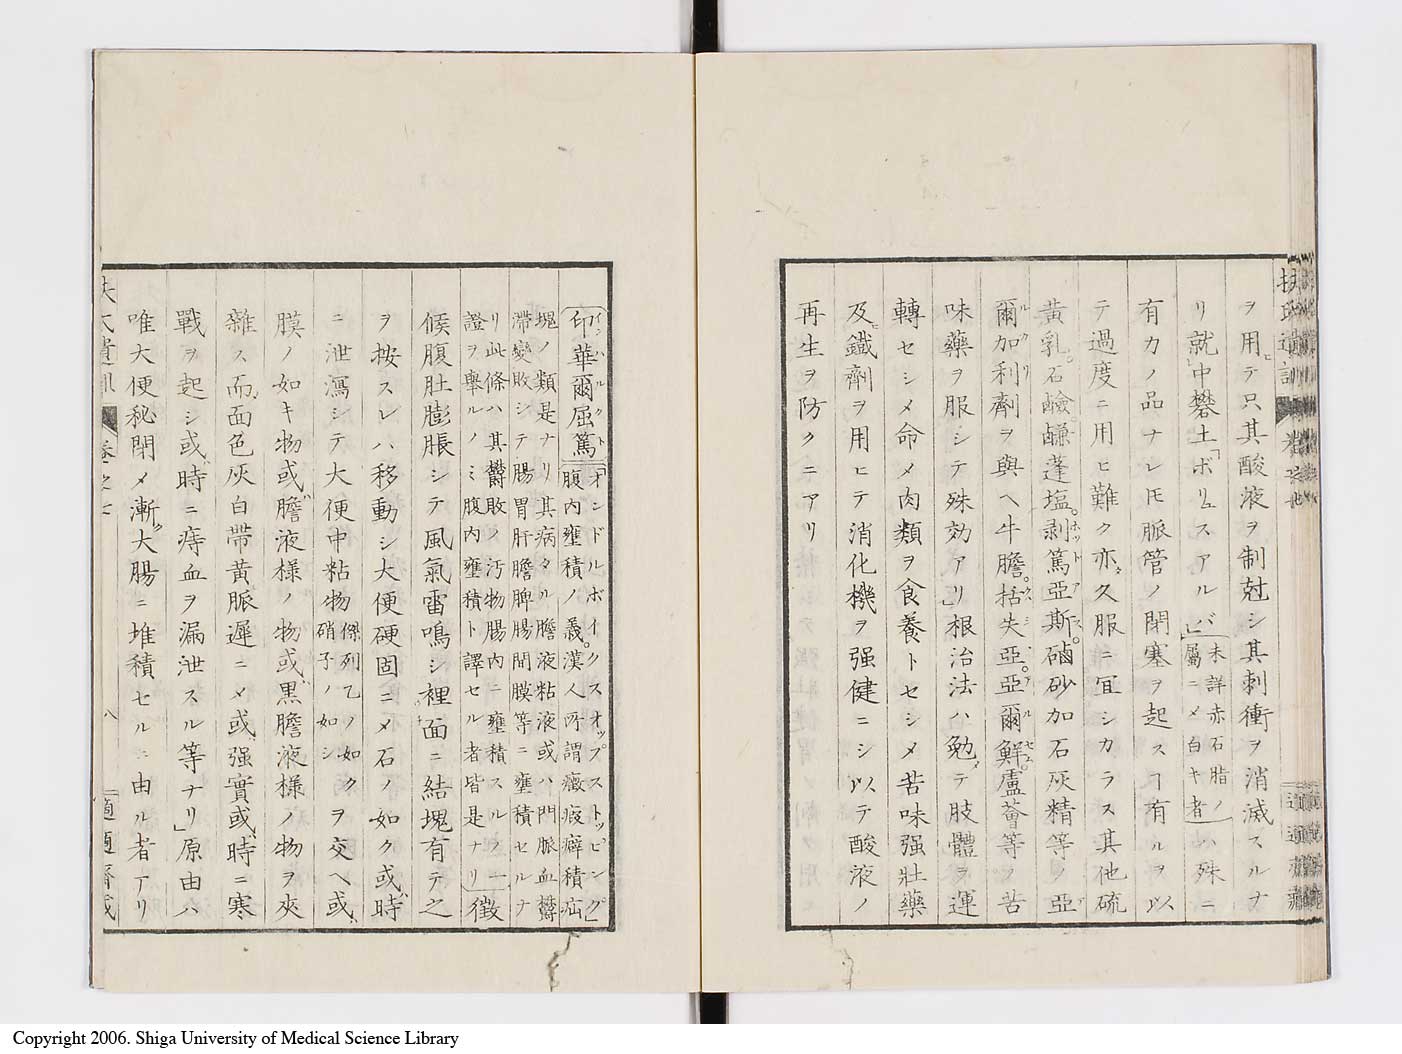 扶氏遺訓
ヲ用テ只其酸液ヲ制尅シ其刺衝ヲ消滅スルナ
リ就中礬土「ボリュスアルバ」未詳赤石脂ノ屬ニメ白キ者ハ殊ニ
有カノ品ナレ𪜈脈管ノ閉塞ヲ起スヿ有ルヲ以
テ過度ニ用ヒ難ク亦久服ニ冝シカラス其他硫
黃乳石鹼鹻蓬塩剥篤亞斯磠砂加石灰精等ノ亞
爾加利劑ヲ與ヘ牛膽括失亞亞爾鮮盧薈等ノ苦
味藥ヲ服シテ殊効アリ」根治法ハ勉テ肢體ヲ運
轉セシメ命メ肉類ヲ食養トセシメ苦味强壯藥
及鐵劑ヲ用ヒテ消化機ヲ强健ニシ以テ酸液ノ
再生ヲ防クニアリ
印華爾屈篤
インハルクト
「オンドルボイクスオップストッピング」
腹内壅積ノ義漢人所謂癥瘕癖積疝
塊ノ類是ナリ其病タル膽液粘液或ハ門脈血鬱
滯變敗シテ腸胃肝膽脾腸間膜等ニ壅積セルナ
リ此條ハ其鬱敗ノ汚物腸内ニ壅積スルノ一
證ヲ擧ルノミ腹内壅積ト譯セル者皆是ナリ
徵
候腹肚膨脹シテ風氣雷鳴シ裡面ニ結塊有テ之
ヲ按スレハ移動シ大便硬固ニメ石ノ如ク或時
ニ泄瀉シテ大便中粘物傑列乙ノ如ク硝子ノ如シヲ交ヘ或
膜ノ如キ物或膽液様ノ物或黒膽液様ノ物ヲ夾
雜ス而面色灰白帶黃脈遲ニメ或强實或時ニ寒
戰ヲ起シ或時ニ痔血ヲ漏泄スル等ナリ」原由ハ
唯大便秘閉メ漸大腸ニ堆積セルニ由ル者アリ
扶氏遺訓 卷之七 八 適適齋藏
Copyright 2006. Shiga University of Medical Science Library